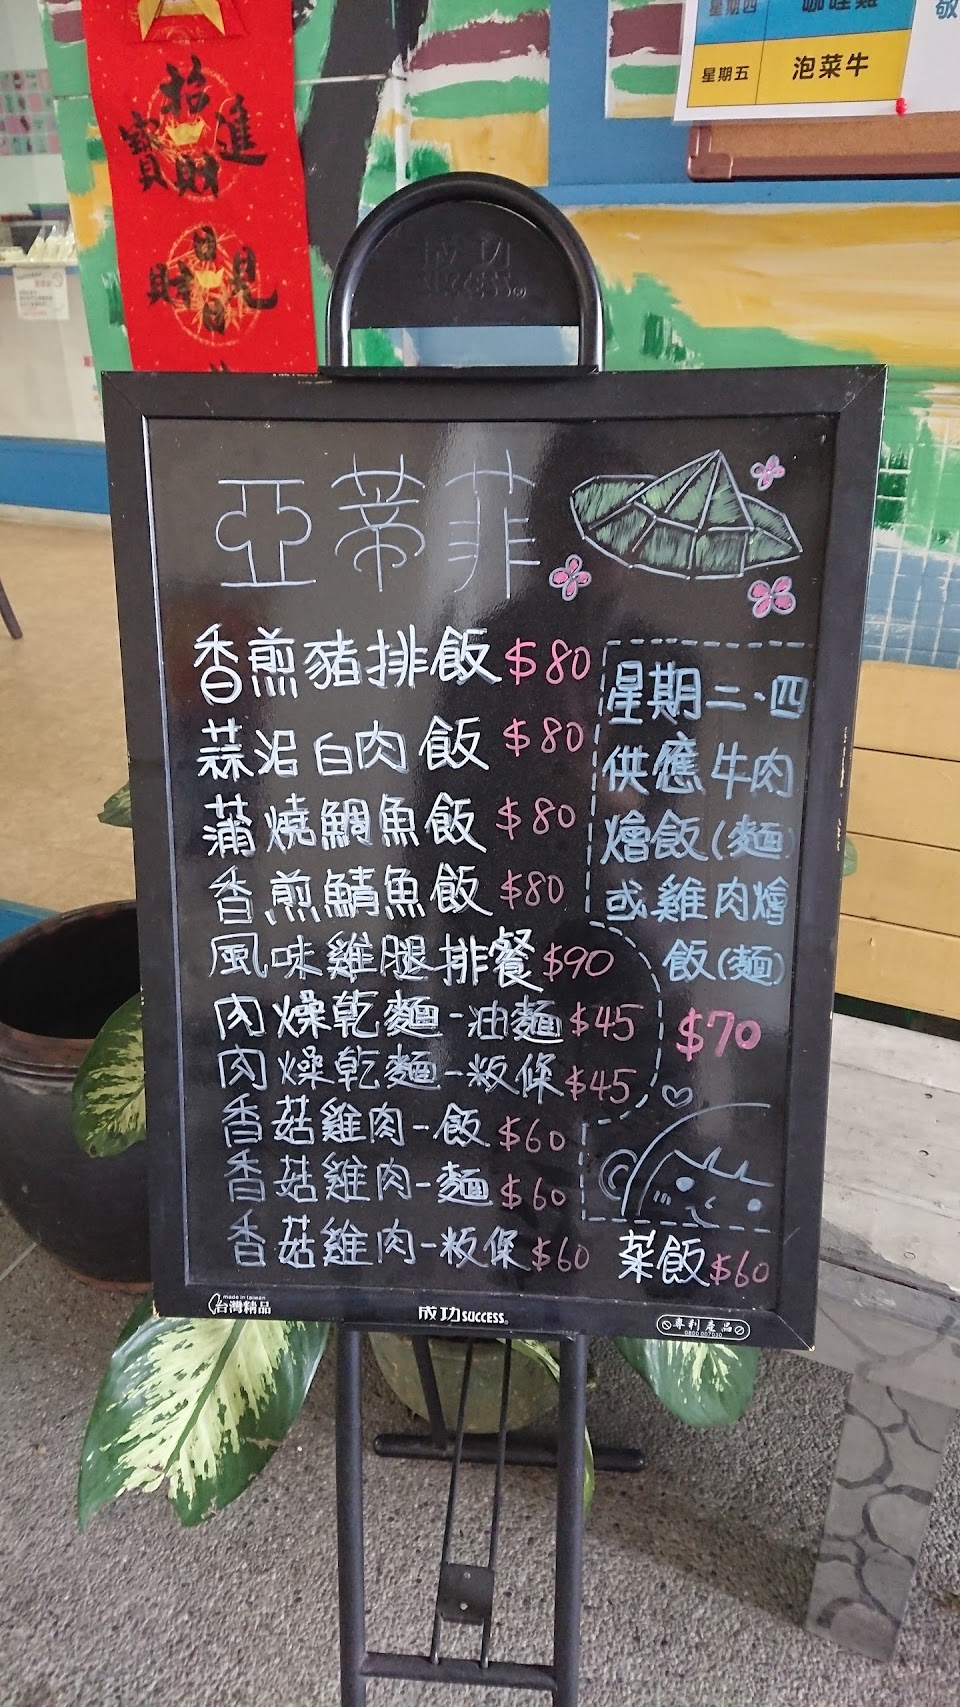 招
財
寶
進
財
見
日
星期四
咖哩雞
星期五
泡菜牛
敬
成功
SUCCESS®
亞蒂菲
香煎豬排飯 $80
蒜泥白肉飯 $80
蒲燒鯛魚飯 $80
香煎鯖魚飯 $80
風味雞腿排餐 $90
肉燥乾麵-油麵 $45
肉燥乾麵-粄條 $45
香菇雞肉-飯 $60
香菇雞肉-麵 $60
香菇雞肉-粄條 $60
星期二、四
供應牛肉
燴飯(麵)
或雞肉燴
飯(麵)
$70
菜飯 $60
made in taiwan
台灣精品
成功 SUCCESS®
專利產品